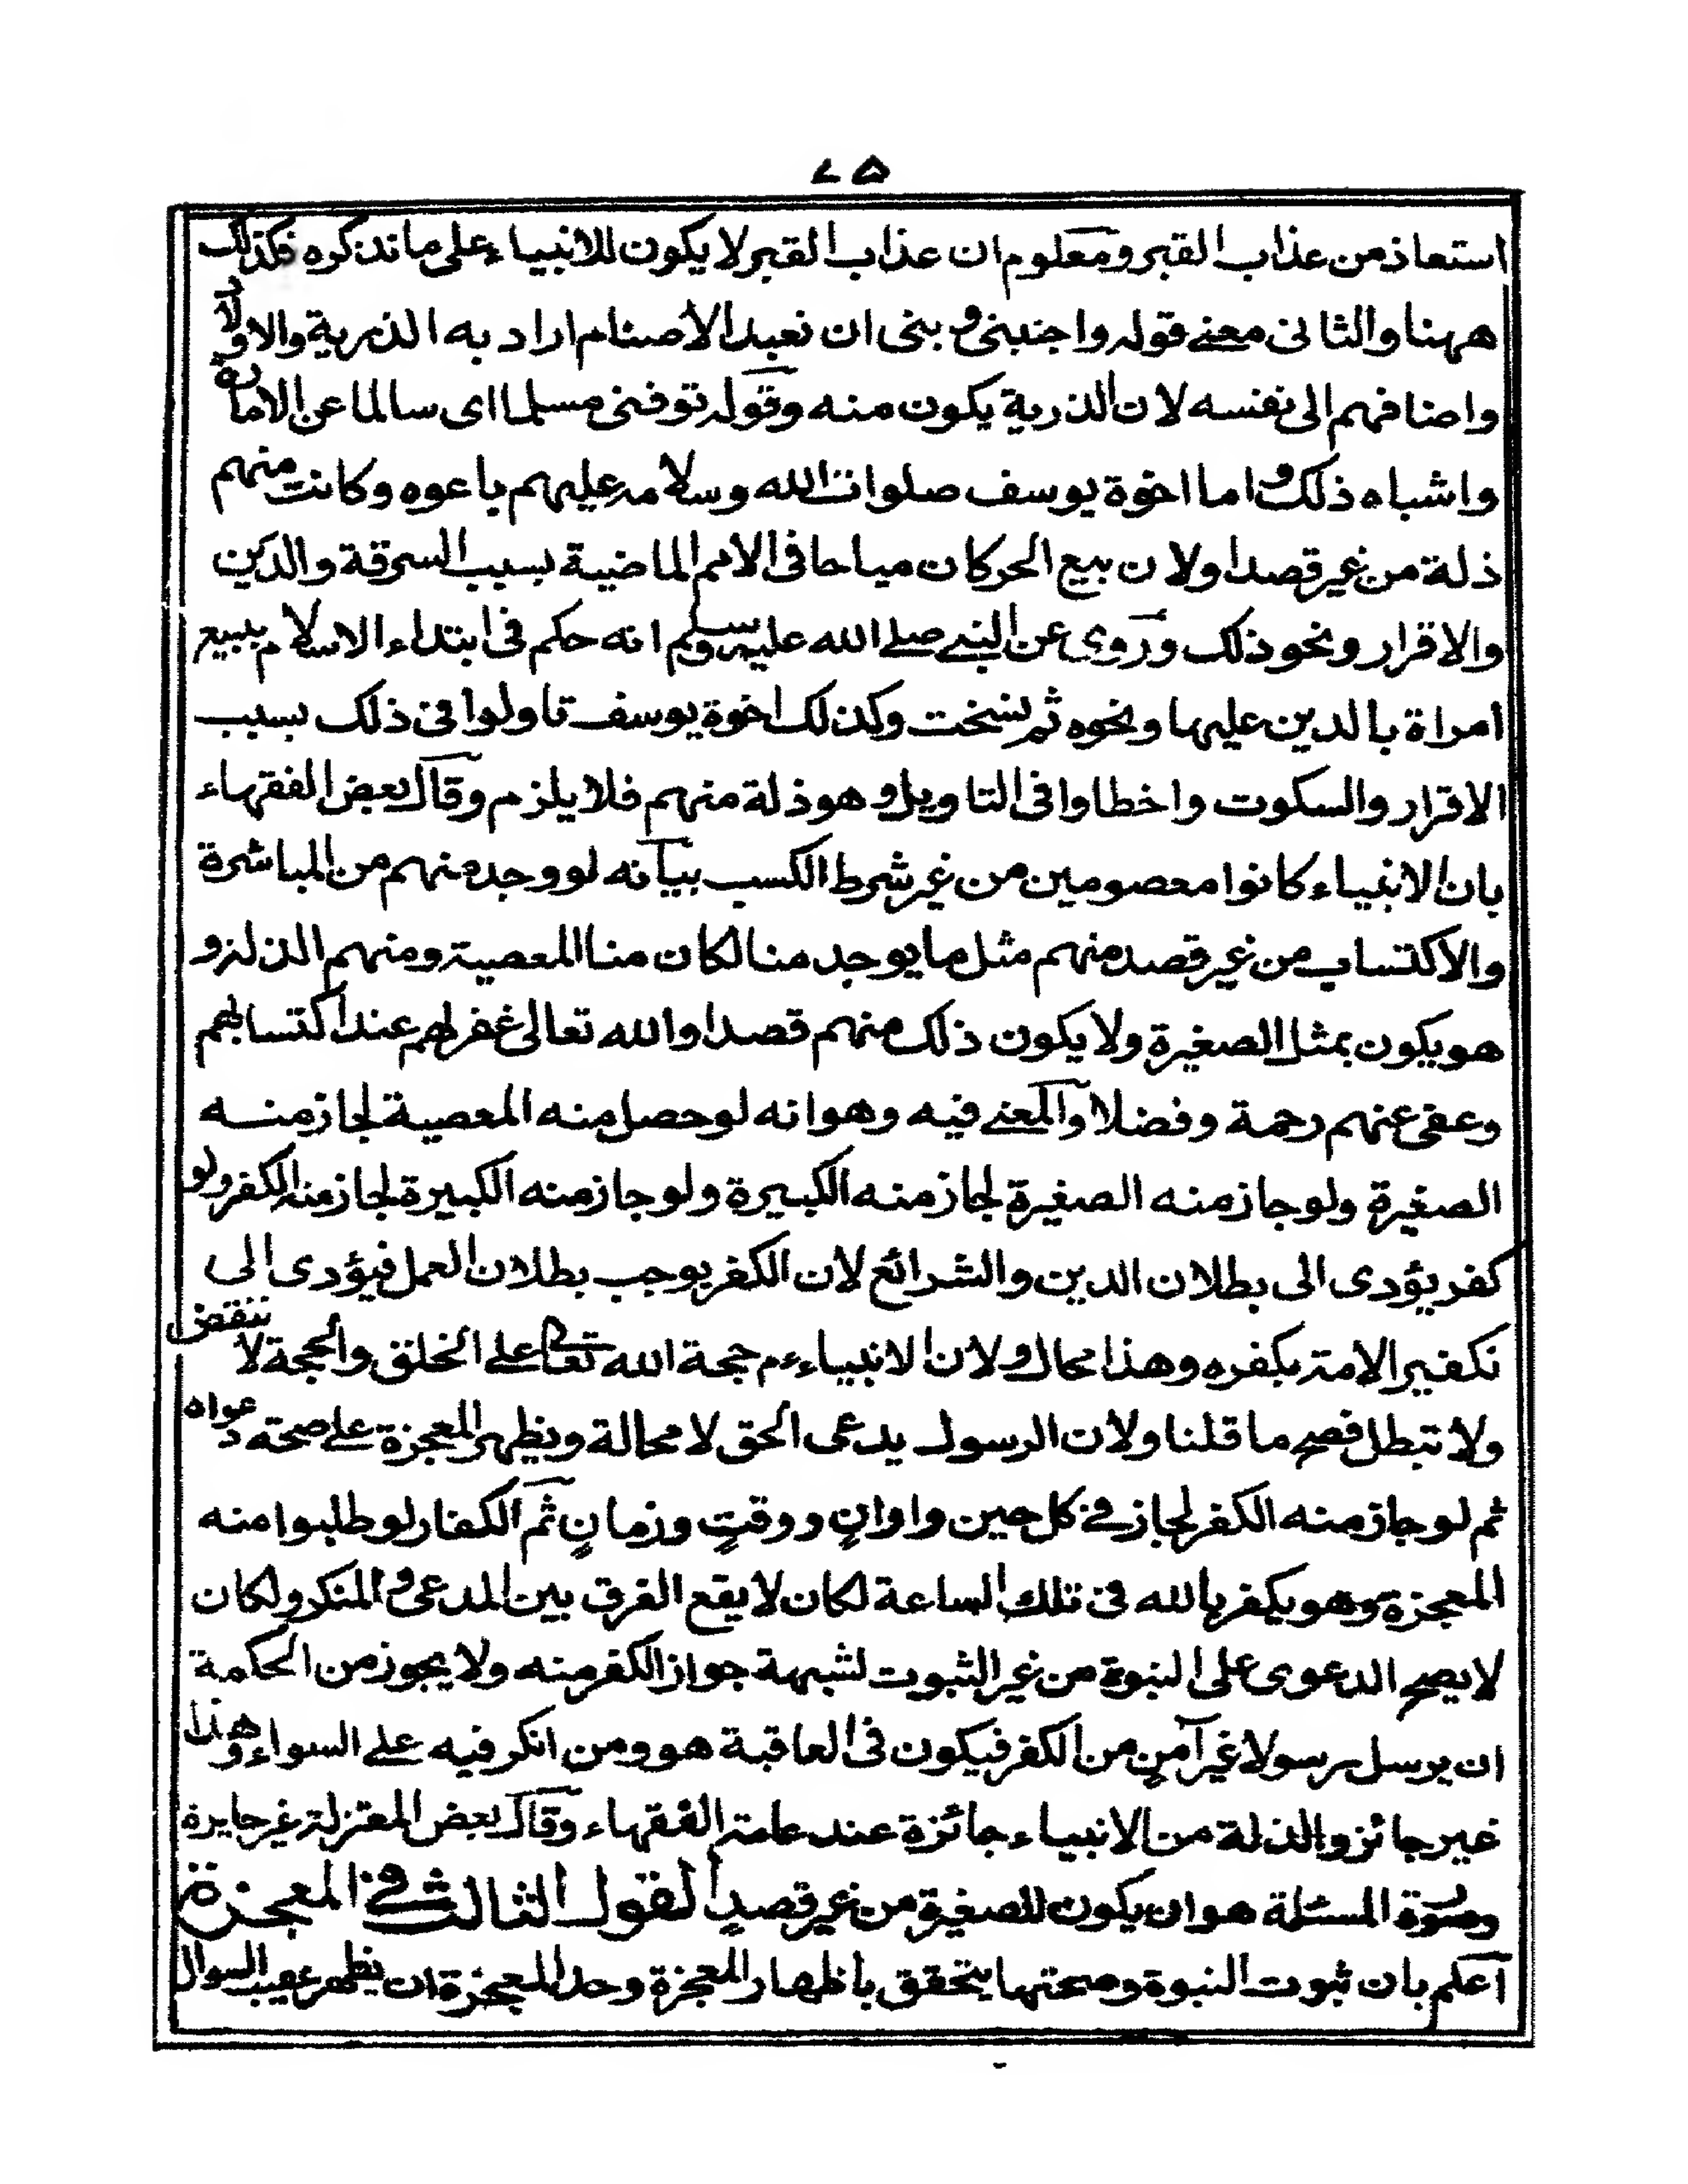 ٧٥
استعاذ من عذاب القبر ومعلوم ان عذاب القبر لا يكون للانبياء على ما نذكره فكذلك
ههنا والثانى معنے قوله واجنبنى و بنى ان نعبد الاصنام اراد به الذرية والاولاد
واضافهم الى نفسه لان الذرية يكون منه وقوله توفنى مسلما اى سالما عن الامارة
واشباه ذلك و اما اخوة يوسف صلوات الله وسلامه عليهم باعوه وكانت منهم
ذلة من غير قصد اولان بيع الحر كان مباحا فى الامم الماضية بسبب السرقة والدين
والاقرار ونحو ذلك وروى عن النبے صلے الله عليه وسلم انه حكم فى ابتداء الاسلام ببيع
امراة بالدين عليها ونحوه ثم نسخت وكذلك اخوة يوسف تاولوا فى ذلك بسبب
الاقرار والسكوت واخطاوا فى التاويل و هو ذلة منهم فلا يلزم وقال بعض الفقهاء
بان الانبياء كانوا معصومين من غير شرط الكسب بيانه لو وجد منهم من المباشرة
والاكتساب من غير قصد منهم مثل ما يوجد منا لكان منا المعصية ومنهم الذلة و
هو يكون بمثل الصغيرة ولا يكون ذلك منهم قصدا والله تعالى غفر لهم عند اكتسابهم
وعفى عنهم رحمة وفضلا والمعنے فيه وهو انه لو حصل منه المعصية لجاز منه
الصغيرة ولو جاز منه الصغيرة لجاز منه الكبيرة ولو جاز منه الكبيرة لجاز منه الكفر ولو
كفر يؤدى الى بطلان الدين والشرائع لان الكفر يوجب بطلان العمل فيؤدى الى
تكفير الامة بكفره وهذا محال و لان الانبياء ءم حجة الله تعالى علے الخلق والحجة لا تنقض
ولا تبطل فصح ما قلنا ولان الرسول يدعى الحق لا محالة ويظهر المعجزة علے صحة دعواه
ثم لو جاز منه الكفر لجاز فے كل حين واوانٍ ووقتٍ وزمانٍ ثم الكفار لو طلبوا منه
المعجزة وهو يكفر بالله فى تلك الساعة لكان لا يقع الفرق بين المدعى و المنكر ولكان
لا يصح الدعوى على النبوة من غير الثبوت لشبهة جواز الكفر منه ولا يجوز من الحكمة
ان يرسل رسولا غير آمنٍ من الكفر فيكون فى العاقبة هو ومن انكر فيه علے السواء وهذا
غير جائز والذلة من الانبياء جائزة عند عامة الفقهاء وقال بعض المعتزلة غير جايزة
وصورة المسئلة هو ان يكون للصغيرة من غير قصدٍ القول الثالث فے المعجزة
اعلم بان ثبوت النبوة وصحتها يتحقق باظهار المعجزة وحد المعجزة ان يظهر عقيب السوال